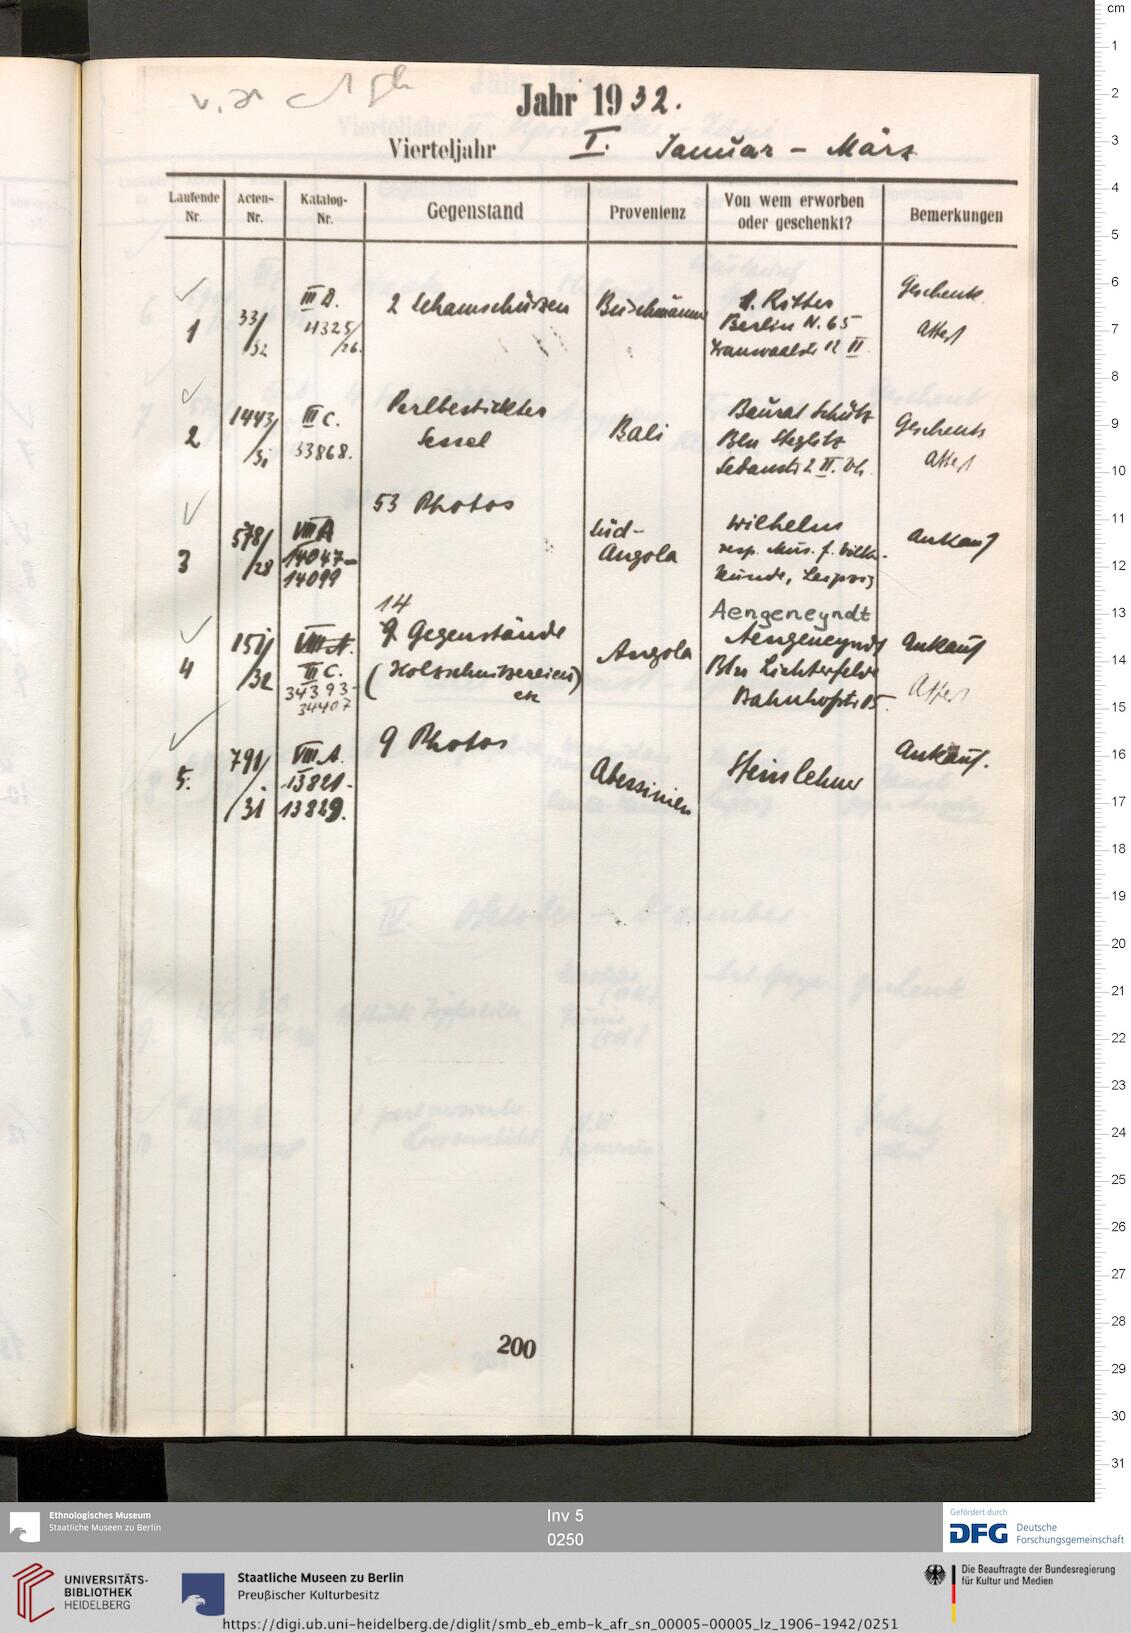 Jahr 1932.
Vierteljahr I. Januar - März
Laufende Nr.
Acten-Nr.
Katalog-Nr.
Gegenstand
Provenienz
Von wem erworben oder geschenkt?
Bemerkungen
1
33/32
III D.
4325/26.
2 Schamschürzen
Buschmänner
Ritter
Berlin N. 65
Transvaalstr 12 II
Geschenk
Attest
2
1443/31
III C.
33868.
Perlbestickter
Sessel
Bali
Baurat Schütz
Bln Steglitz
Sedanstr 2 II.
Geschenk
Attest
3
578/28
VIII A
14047-
14099
53 Photos
Süd-
Angola
Wilhelm
resp. Mus. f. Völker-
kunde, Leipzig
Ankauf
4
151/32
VIII A.
III C.
34393-
34407
14
9 Gegenstände
(Holzschnitzereien)
etc
Angola
Aengeneyndt
Aengeneyndt
Bln Lichterfelde
Bahnhofstr
Ankauf
Attest
5.
791/31
VIII A.
13821-
13829.
9 Photos
Abessinien
Steinlehner
Ankauf.
200
cm
1
2
3
4
5
6
7
8
9
10
11
12
13
14
15
16
17
18
19
20
21
22
23
24
25
26
27
28
29
30
31
Ethnologisches Museum
Staatliche Museen zu Berlin
Inv 5
0250
Gefördert durch
DFG Deutsche
Forschungsgemeinschaft
UNIVERSITÄTS-
BIBLIOTHEK
HEIDELBERG
Staatliche Museen zu Berlin
Preußischer Kulturbesitz
Die Beauftragte der Bundesregierung
für Kultur und Medien
https://digi.ub.uni-heidelberg.de/diglit/smb_eb_emb-k_afr_sn_00005-00005_lz_1906-1942/0251